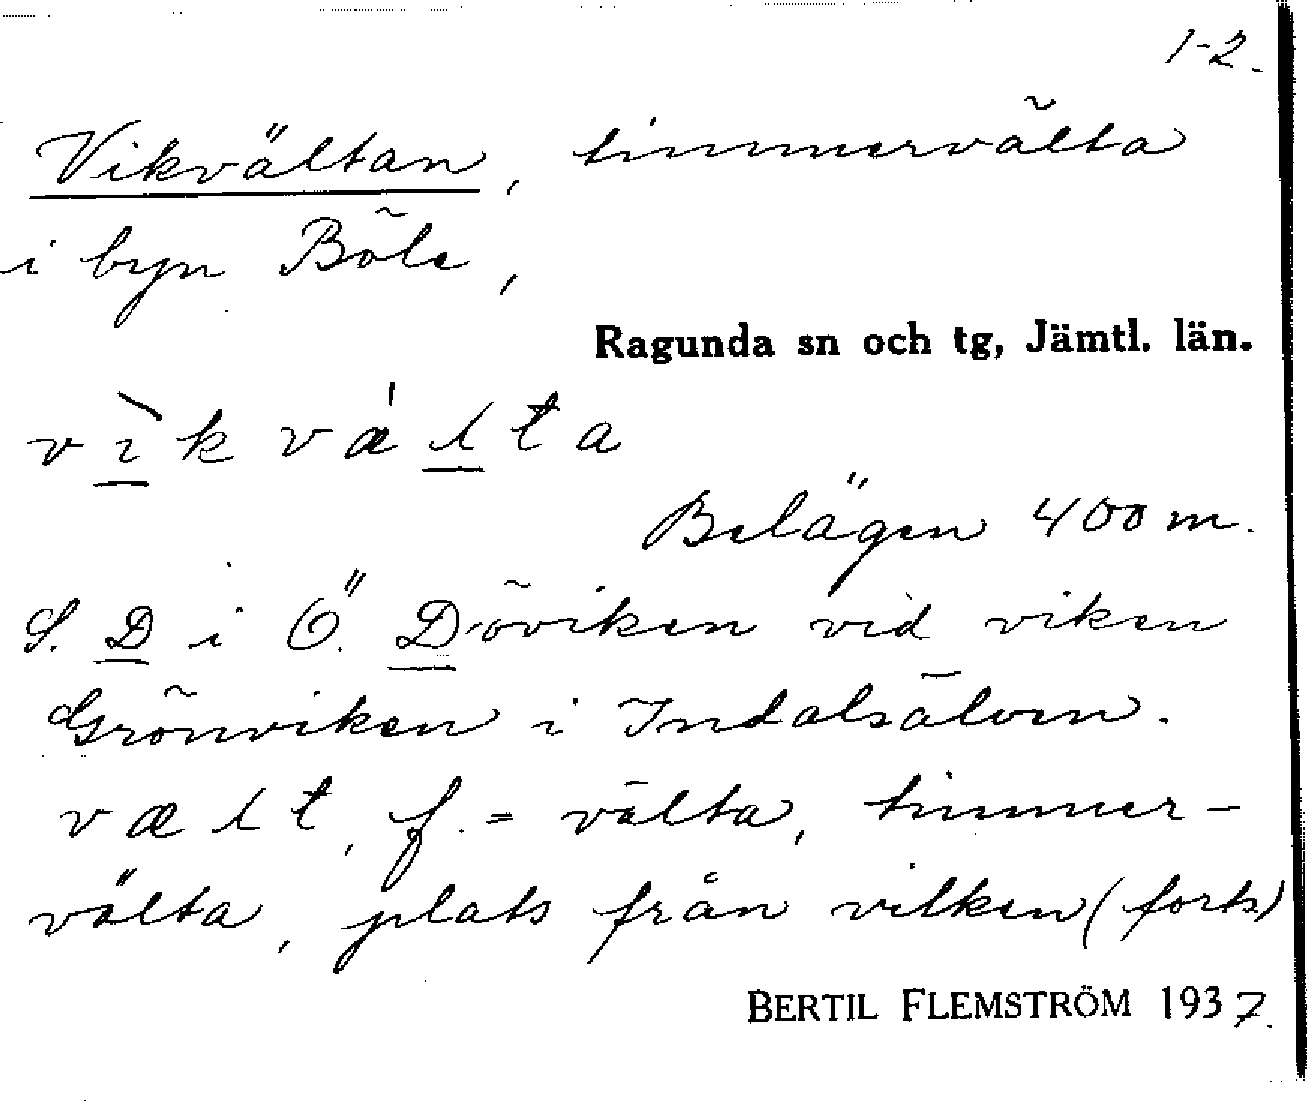 1-2.
Vikvältan, timmervälta
i byn Böle,
Ragunda sn och tg, Jämtl. län.
vìkvælta
Belägen 400 m.
S. D i Ö. Döviken vid viken
Grönviken i Indalsälven.
vælt, f. = välta, timmer-
välta, plats från vilken (forts)
BERTIL FLEMSTRÖM 1937.